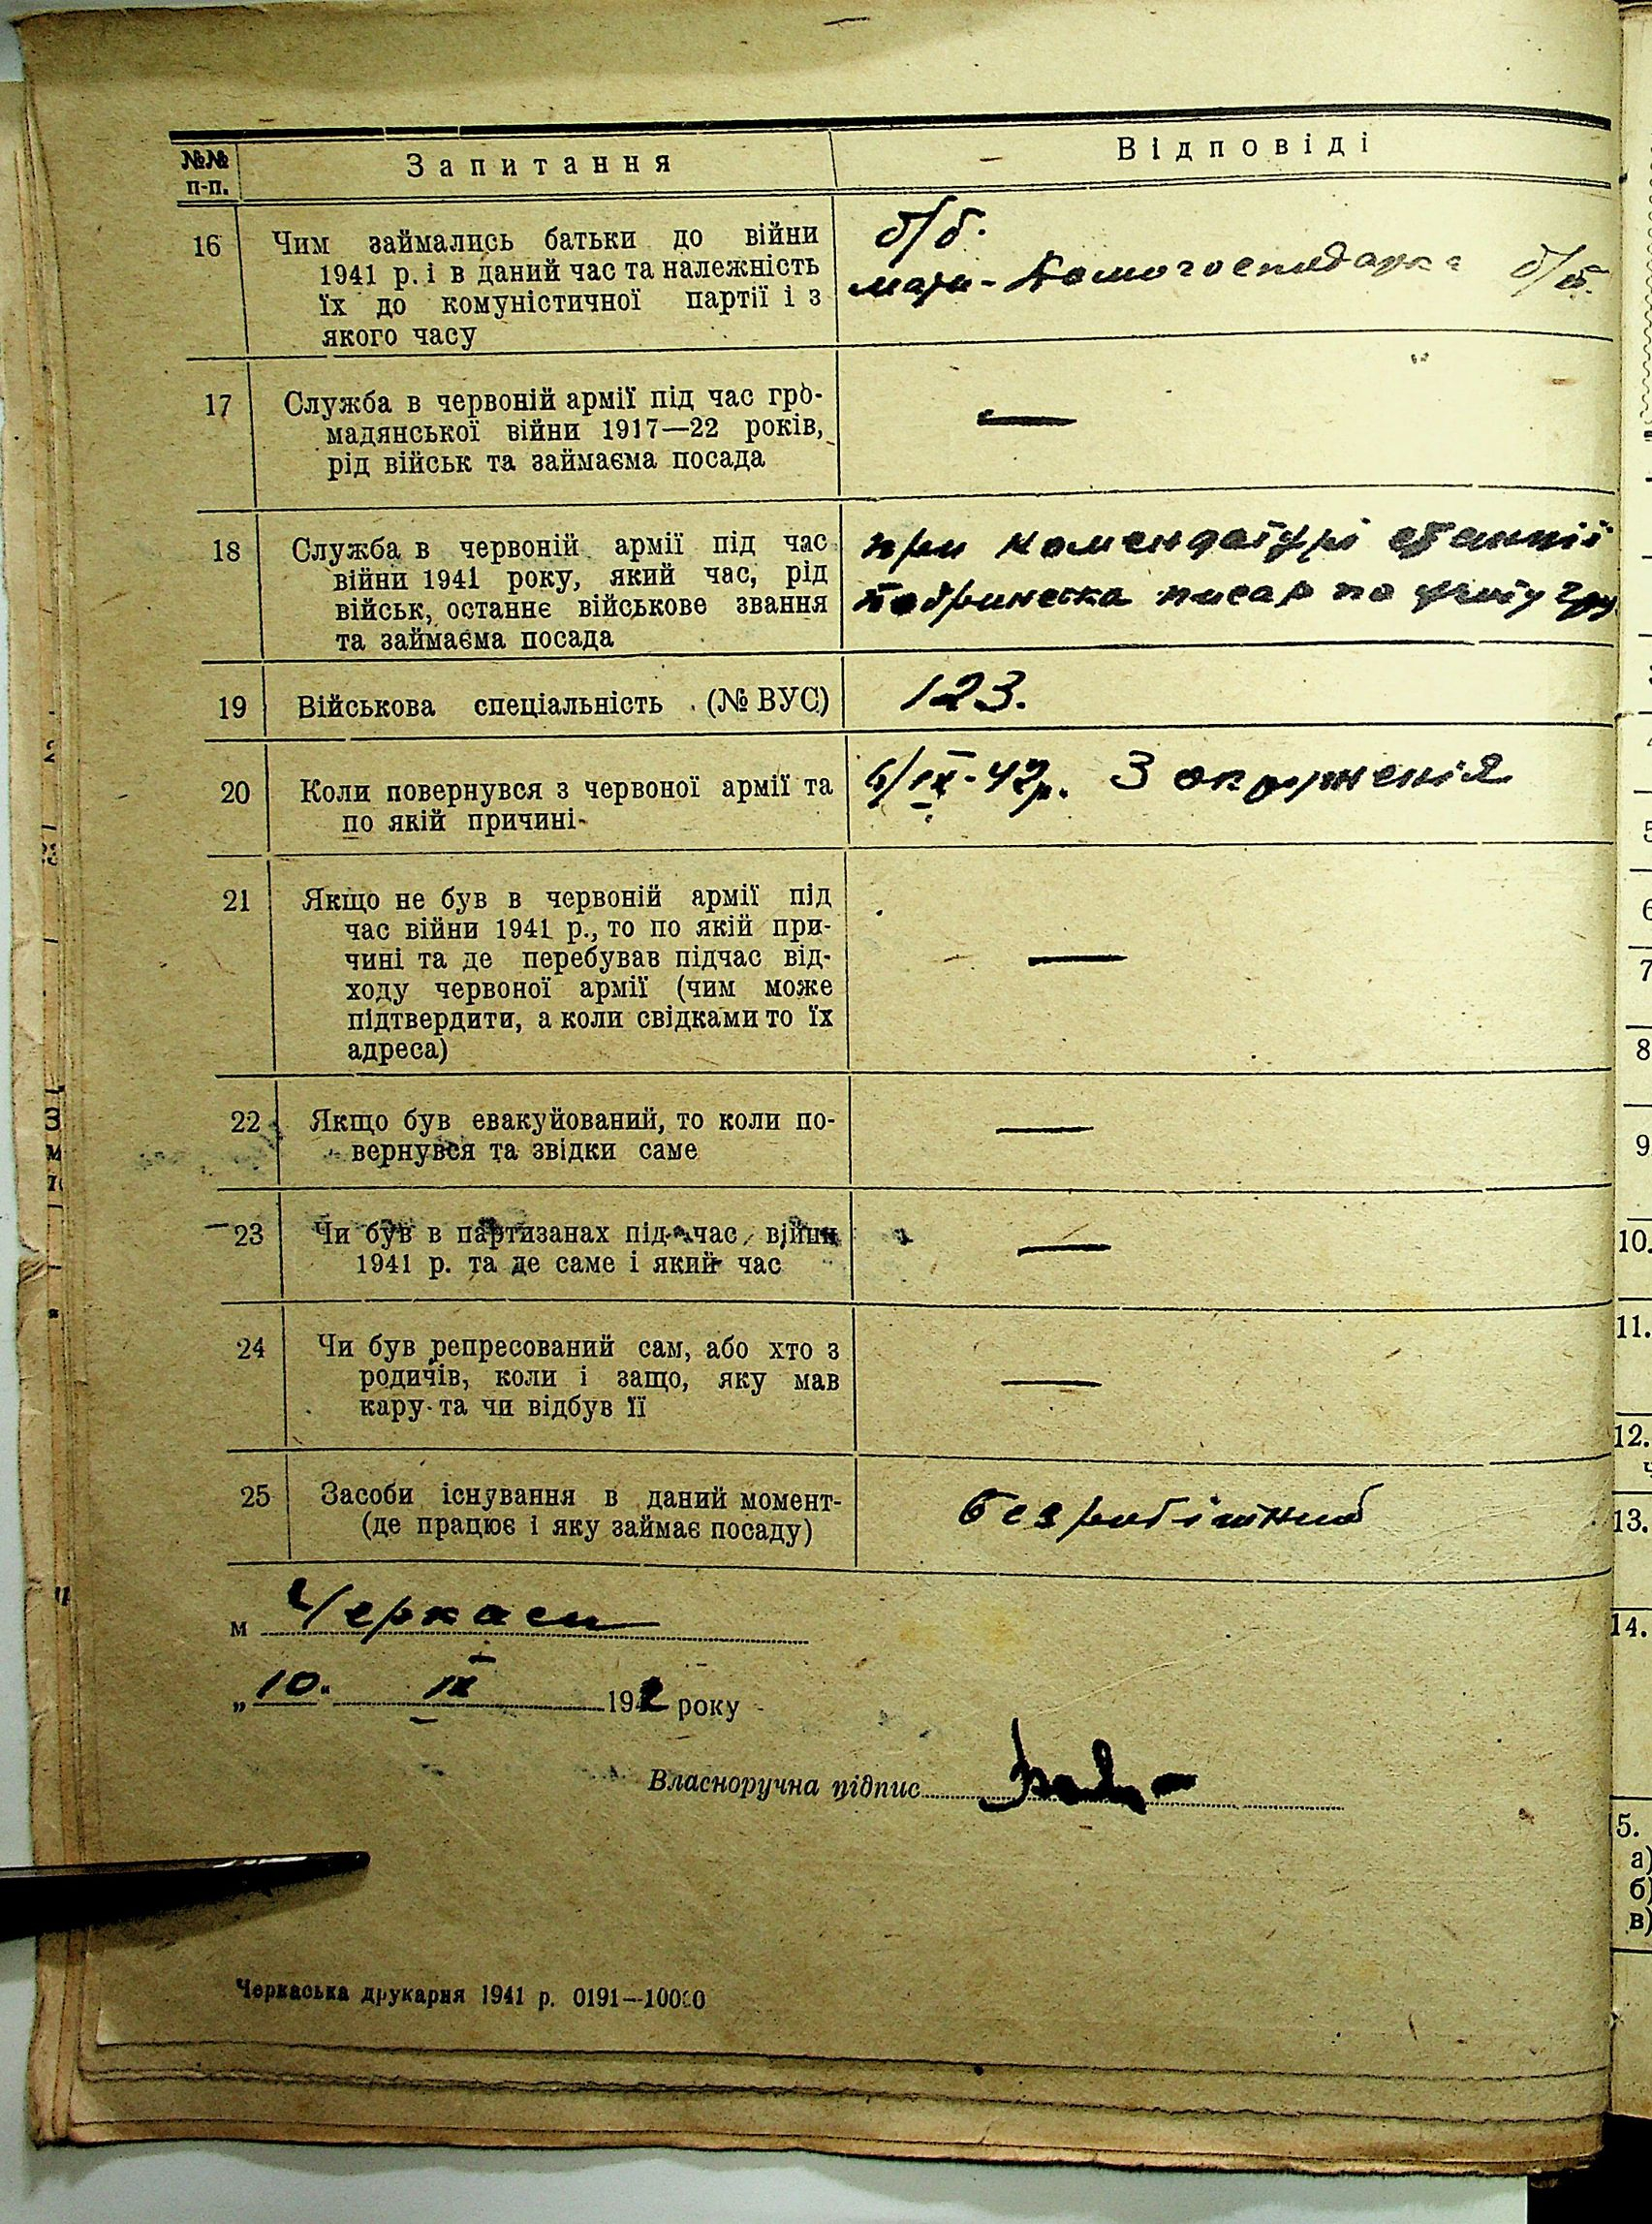 №№ п-п. Запитання Відповіді
16 Чим займались батьки до війни
1941 р. і в даний час та належність
їх до комуністичної партії і з
якого часу
б/б.
мати - домогосподарка б/б.
17 Служба в червоній армії під час гро-
мадянської війни 1917—22 років,
рід військ та займаєма посада
—
18 Служба в червоній армії під час
війни 1941 року, який час, рід
військ, останнє військове звання
та займаєма посада
при комендатурі станції
писар по учоту
19 Військова спеціальність (№ ВУС)
123.
20 Коли повернувся з червоної армії та
по якій причині
6/IX-42р. З окруженія
21 Якщо не був в червоній армії під
час війни 1941 р., то по якій при-
чині та де перебував підчас від-
ходу червоної армії (чим може
підтвердити, а коли свідками то їх
адреса)
—
22 Якщо був евакуйований, то коли по-
вернувся та звідки саме
—
23 Чи був в партизанах під час війни
1941 р. та де саме і який час
—
24 Чи був репресований сам, або хто з
родичів, коли і защо, яку мав
кару та чи відбув її
—
25 Засоби існування в даний момент
(де працює і яку займає посаду)
безробітний
м Черкаси
„10." IX 1942 року
Власноручна підпис
Черкаська друкарня 1941 р. 0191—10000
5
6
7
8
9
10.
11.
12.
13.
14.
5.
а)
б)
в)